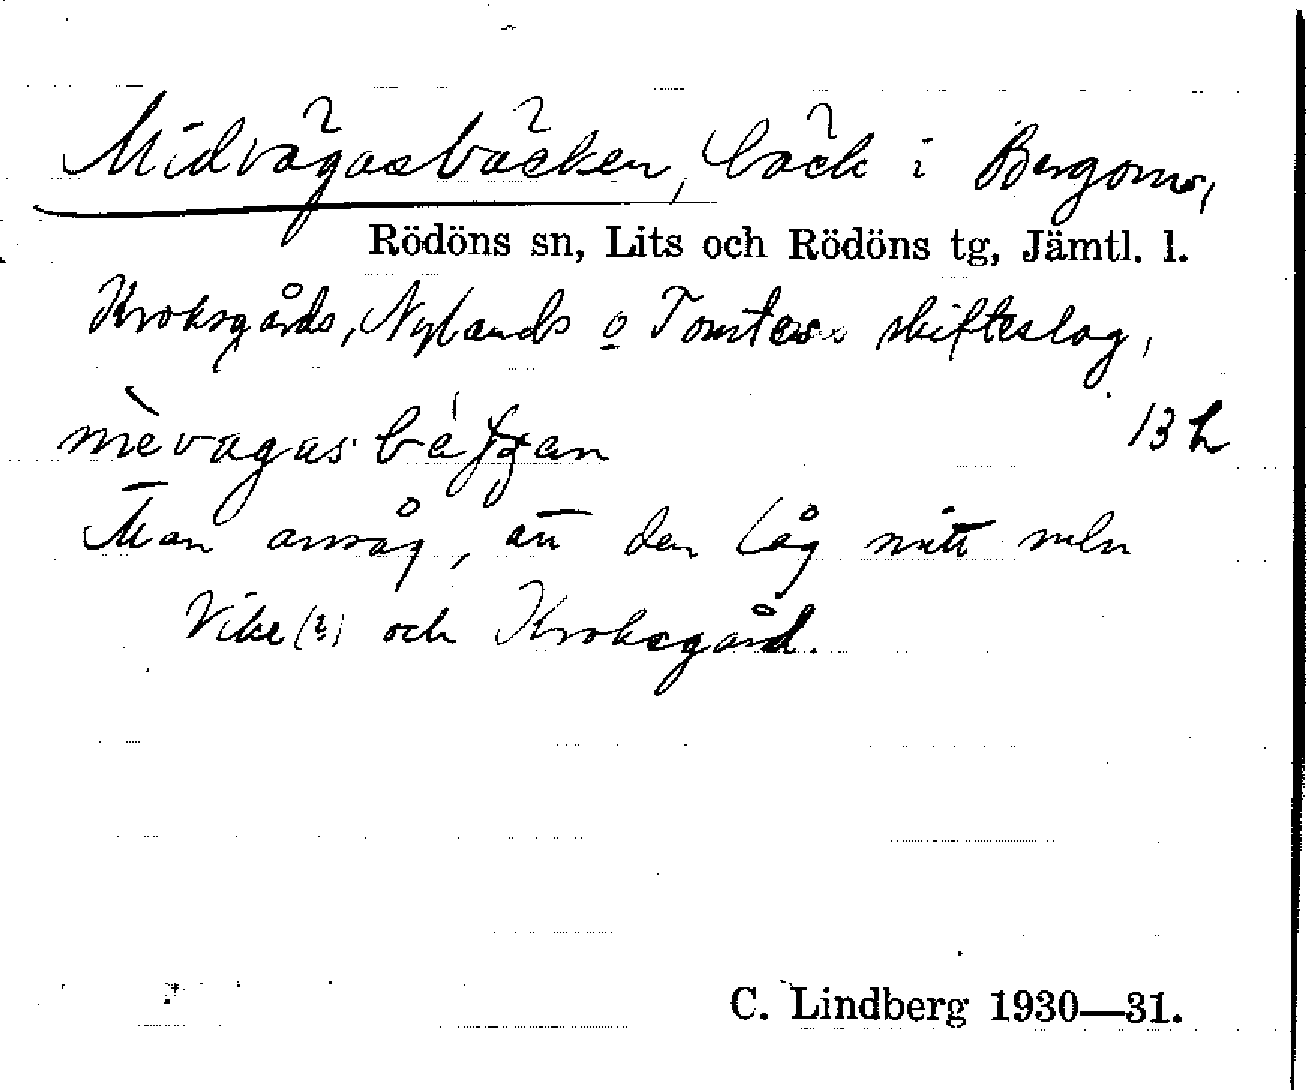 Midvägasbäcken, bäck i Bergoms,
Rödöns sn, Lits och Rödöns tg, Jämtl. l.
Kroksgårds, Nylands o Tomters skifteslag,
13 h
Man ansåg, att den låg mitt meln
Vike (?) och Kroksgård.
C. Lindberg 1930—31.